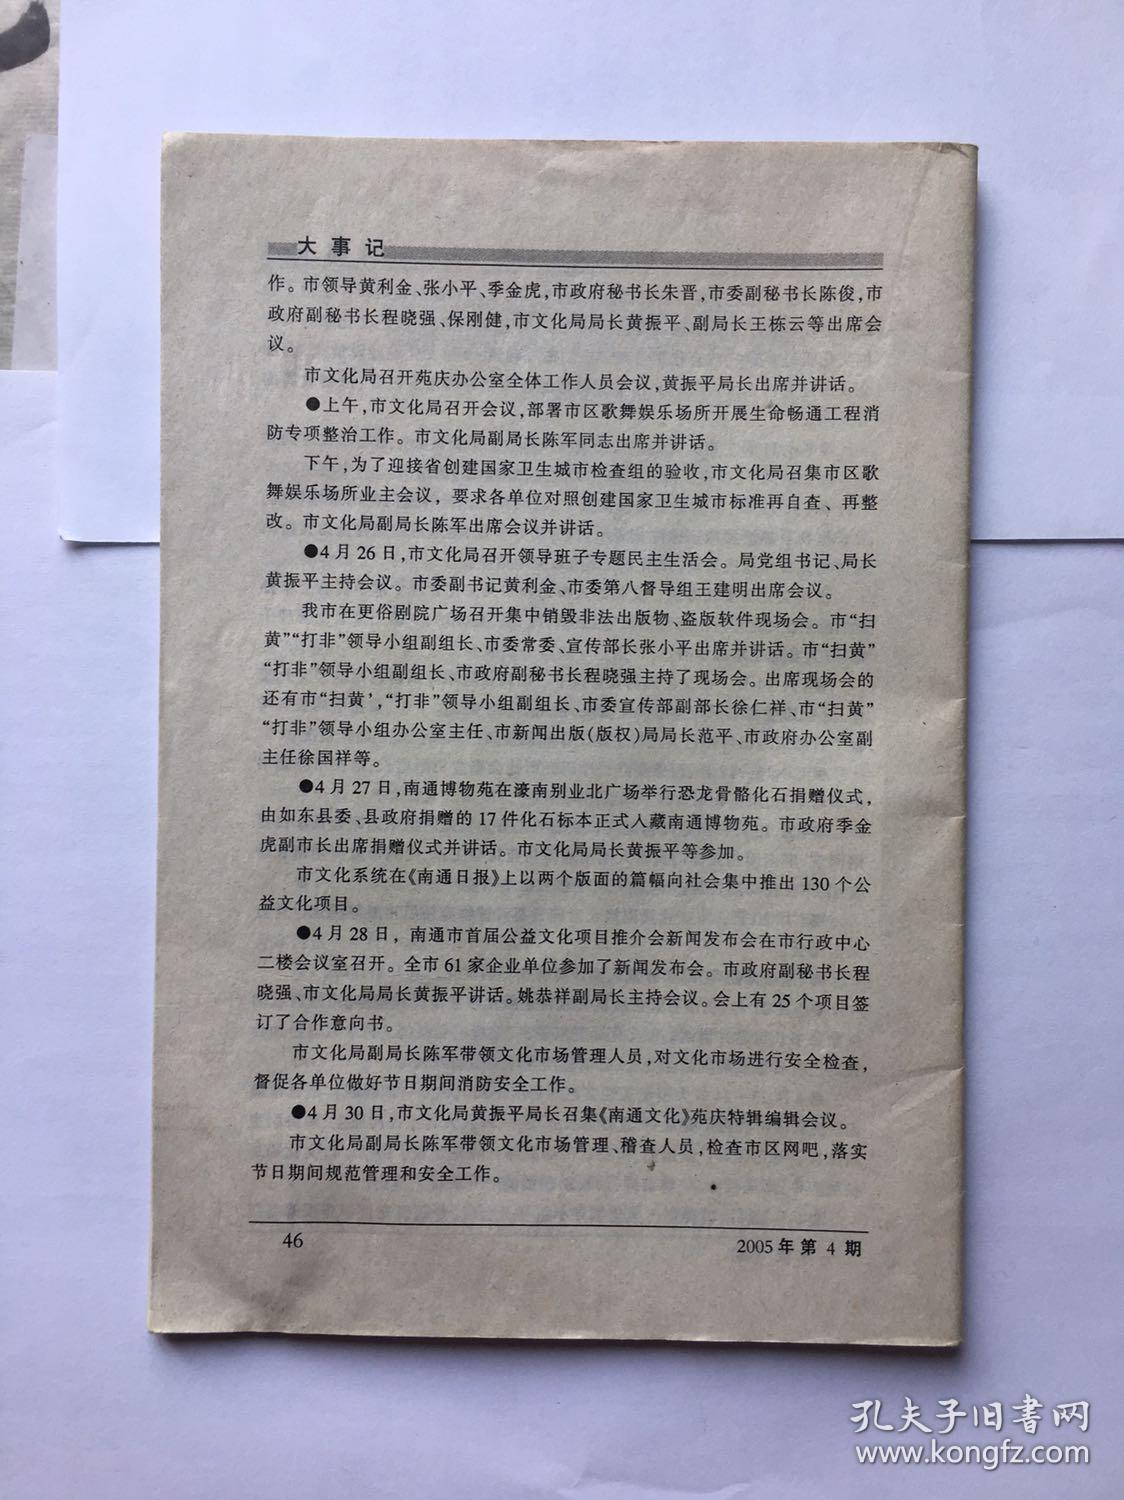 大事记
作。市领导黄利金、张小平、季金虎,市政府秘书长朱晋,市委副秘书长陈俊,市
政府副秘书长程晓强、保刚健,市文化局局长黄振平、副局长王栋云等出席会
议。
市文化局召开苑庆办公室全体工作人员会议,黄振平局长出席并讲话。
●上午,市文化局召开会议,部署市区歌舞娱乐场所开展生命畅通工程消
防专项整治工作。市文化局副局长陈军同志出席并讲话。
下午,为了迎接省创建国家卫生城市检查组的验收,市文化局召集市区歌
舞娱乐场所业主会议，要求各单位对照创建国家卫生城市标准再自查、再整
改。市文化局副局长陈军出席会议并讲话。
●4月26日,市文化局召开领导班子专题民主生活会。局党组书记、局长
黄振平主持会议。市委副书记黄利金、市委第八督导组王建明出席会议。
我市在更俗剧院广场召开集中销毁非法出版物、盗版软件现场会。市“扫
黄”“打非”领导小组副组长、市委常委、宣传部长张小平出席并讲话。市“扫黄”
“打非”领导小组副组长、市政府副秘书长程晓强主持了现场会。出席现场会的
还有市“扫黄’,“打非”领导小组副组长、市委宣传部副部长徐仁祥、市“扫黄”
“打非”领导小组办公室主任、市新闻出版(版权)局局长范平、市政府办公室副
主任徐国祥等。
●4月27日,南通博物苑在濠南别业北广场举行恐龙骨骼化石捐赠仪式,
由如东县委、县政府捐赠的17件化石标本正式入藏南通博物苑。市政府季金
虎副市长出席捐赠仪式并讲话。市文化局局长黄振平等参加。
市文化系统在《南通日报》上以两个版面的篇幅向社会集中推出130个公
益文化项目。
●4月28日，南通市首届公益文化项目推介会新闻发布会在市行政中心
二楼会议室召开。全市61家企业单位参加了新闻发布会。市政府副秘书长程
晓强、市文化局局长黄振平讲话。姚恭祥副局长主持会议。会上有25个项目签
订了合作意向书。
市文化局副局长陈军带领文化市场管理人员,对文化市场进行安全检查,
督促各单位做好节日期间消防安全工作。
●4月30日,市文化局黄振平局长召集《南通文化》苑庆特辑编辑会议。
市文化局副局长陈军带领文化市场管理、稽查人员,检查市区网吧,落实
节日期间规范管理和安全工作。
46
2005年第4期
孔夫子旧书网
www.kongfz.com